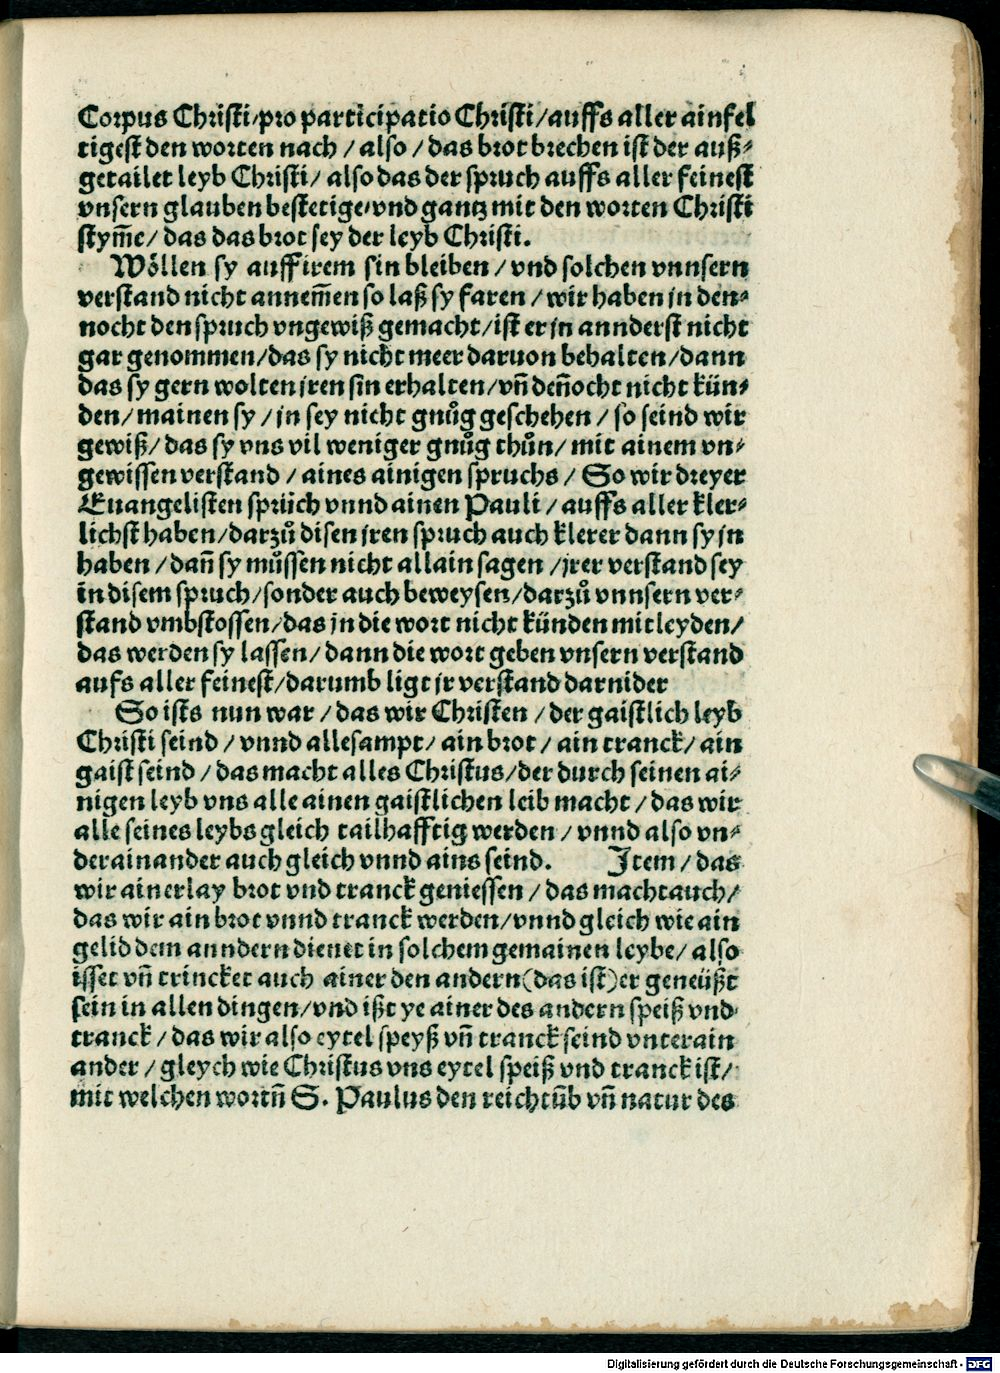 Corpus Christi/pro participatio Christi/auffs aller ainfel
tigest den worten nach / also / das brot brechen ist der auß⸗
getailet leyb Christi/ also das der spruch auffs aller feinest
vnsern glauben bestetige/vnd gantz mit den worten Christi
stym̄e/ das das brot sey der leyb Christi.
Wöllen sy auff irem sin bleiben / vnd solchen vnnsern
verstand nicht annem̄en so laß sy faren / wir haben jn den⸗
nocht den spruch vngewiß gemacht/ist er jn annderst nicht
gar genommen/das sy nicht meer daruon behalten/dann
das sy gern wolten jren sin erhalten/vn̄ den̄ocht nicht kün⸗
den/ mainen sy / jn sey nicht gnůg geschehen / so seind wir
gewiß/ das sy vns vil weniger gnůg thůn/ mit ainem vn⸗
gewissen verstand / aines ainigen spruchs / So wir dreyer
Euangelisten sprüch vnnd ainen Pauli / auffs aller kler⸗
lichst haben/darzů disen jren spruch auch klerer dann sy jn
haben / dan̄ sy můssen nicht allain sagen /jrer verstand sey
in disem spruch/sonder auch beweysen/darzů vnnsern ver⸗
stand vmbstossen/das jn die wort nicht künden mitleyden/
das werden sy lassen/ dann die wort geben vnsern verstand
aufs aller feinest/darumb ligt jr verstand darnider
So ists nun war / das wir Christen / der gaistlich leyb
Christi seind / vnnd allesampt/ ain brot / ain tranck/ ain
gaist seind / das macht alles Christus/der durch seinen ai⸗
nigen leyb vns alle ainen gaistlichen leib macht / das wir
alle seines leybs gleich tailhafftig werden / vnnd also vn⸗
derainander auch gleich vnnd ains seind. Item / das
wir ainerlay brot vnd tranck geniessen / das macht auch/
das wir ain brot vnnd tranck werden/vnnd gleich wie ain
gelid dem anndern dienet in solchem gemainen leybe/ also
isset vn̄ trincket auch ainer den andern(das ist)er geneüßt
sein in allen dingen/vnd ißt ye ainer des andern speiß vnd
tranck / das wir also eytel speyß vn̄ tranck seind vnterain
ander / gleych wie Christus vns eytel speiß vnd tranck ist/
mit welchen wortn̄ S. Paulus den reichtūb vn̄ natur des
Digitalisierung gefördert durch die Deutsche Forschungsgemeinschaft - DFG